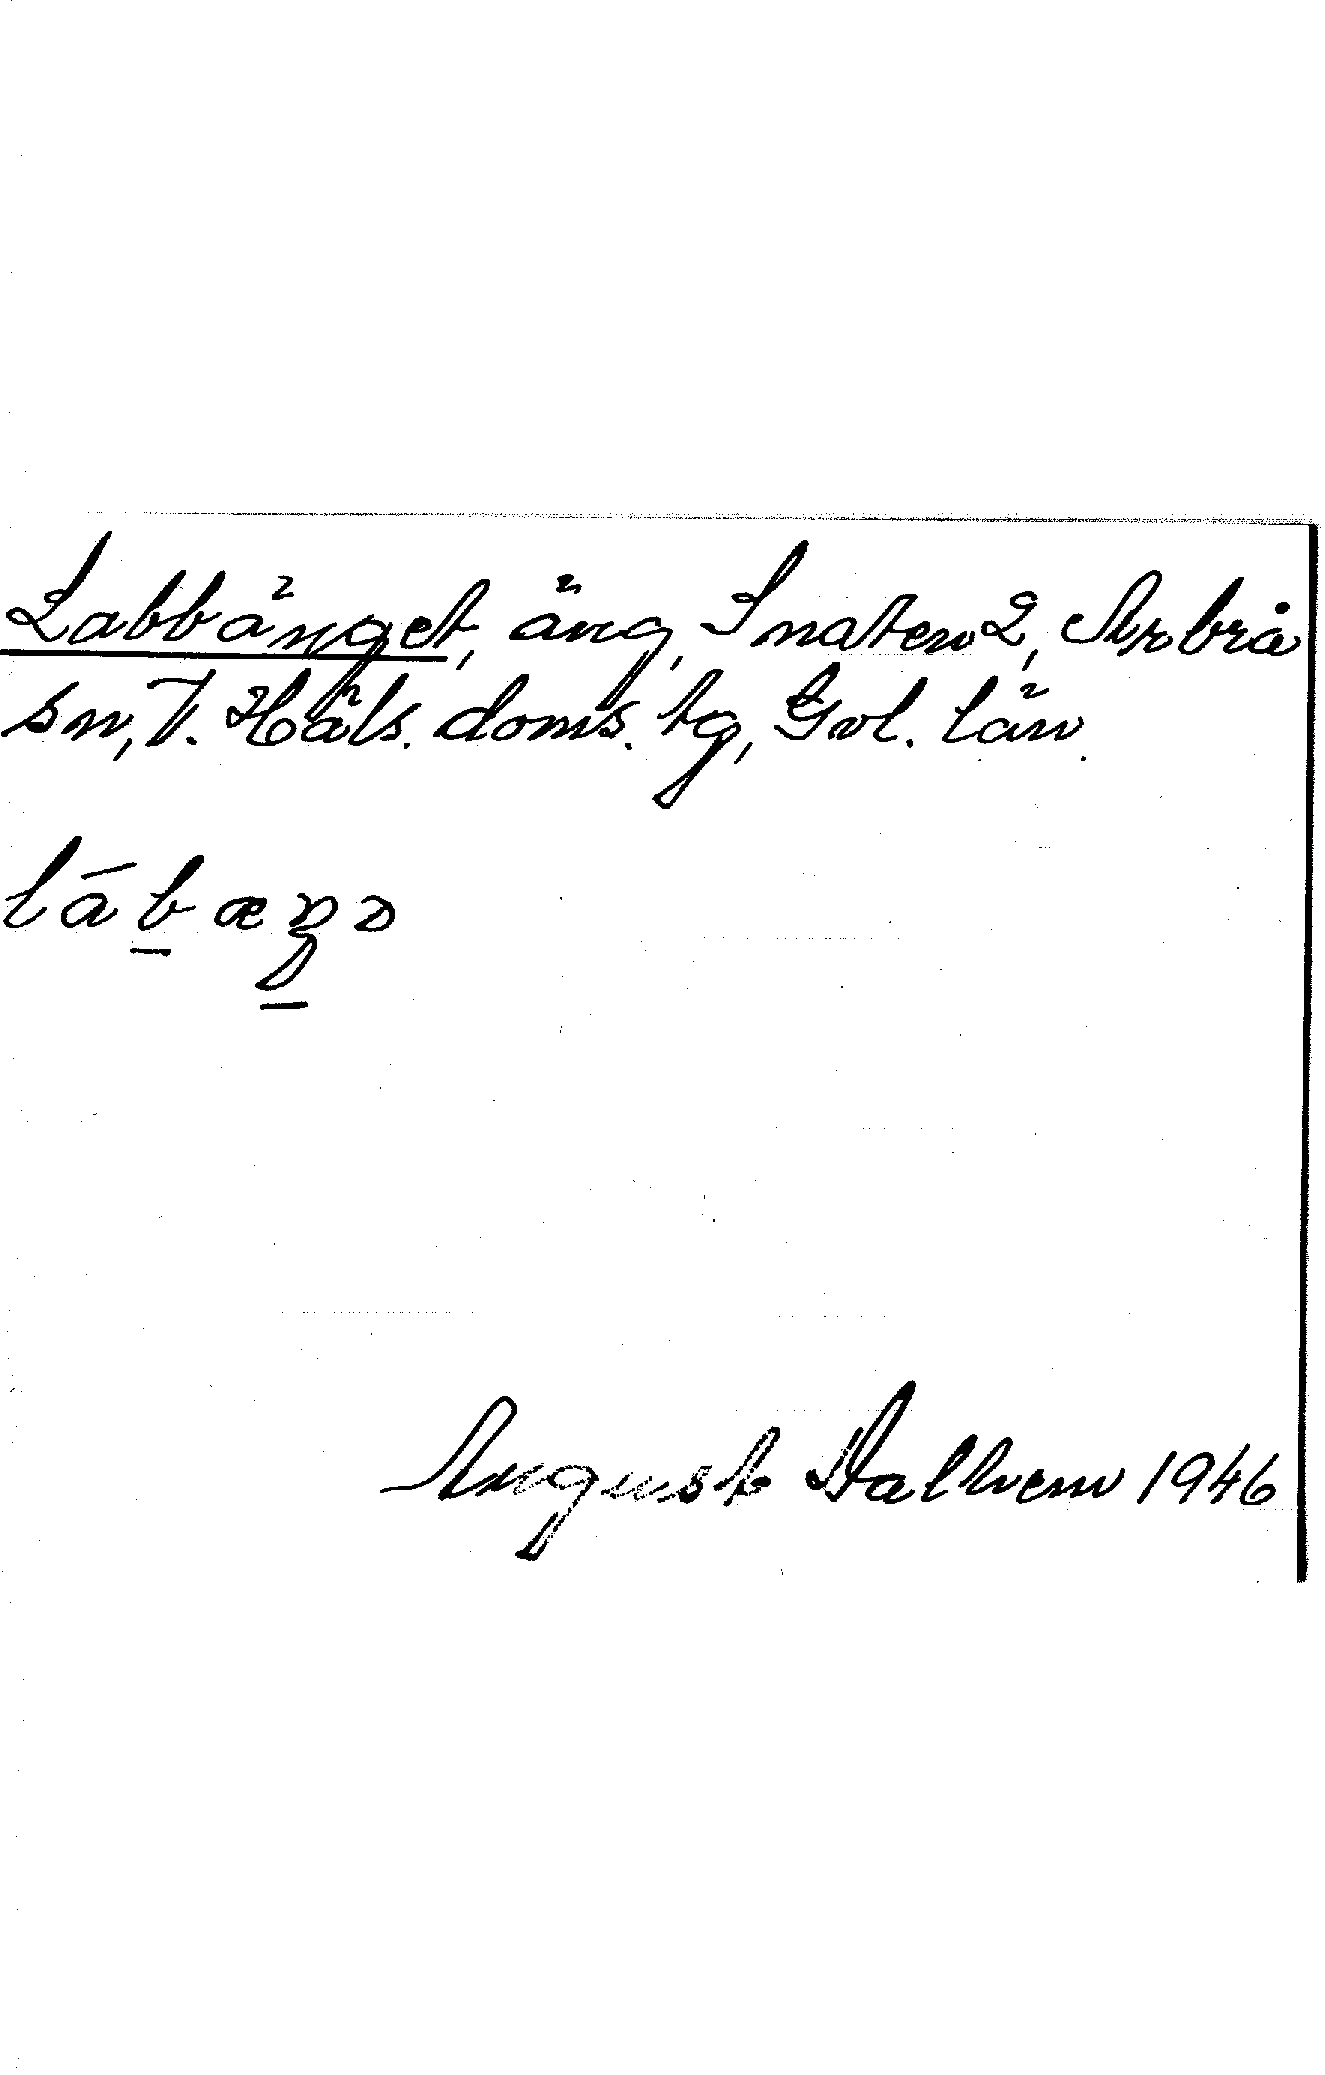 Labbänget, äng, Snaten 2, Arbrå
sn, V. Häls. doms. tg, Gvl. län.
lábæŋə
August Dalhem 1946